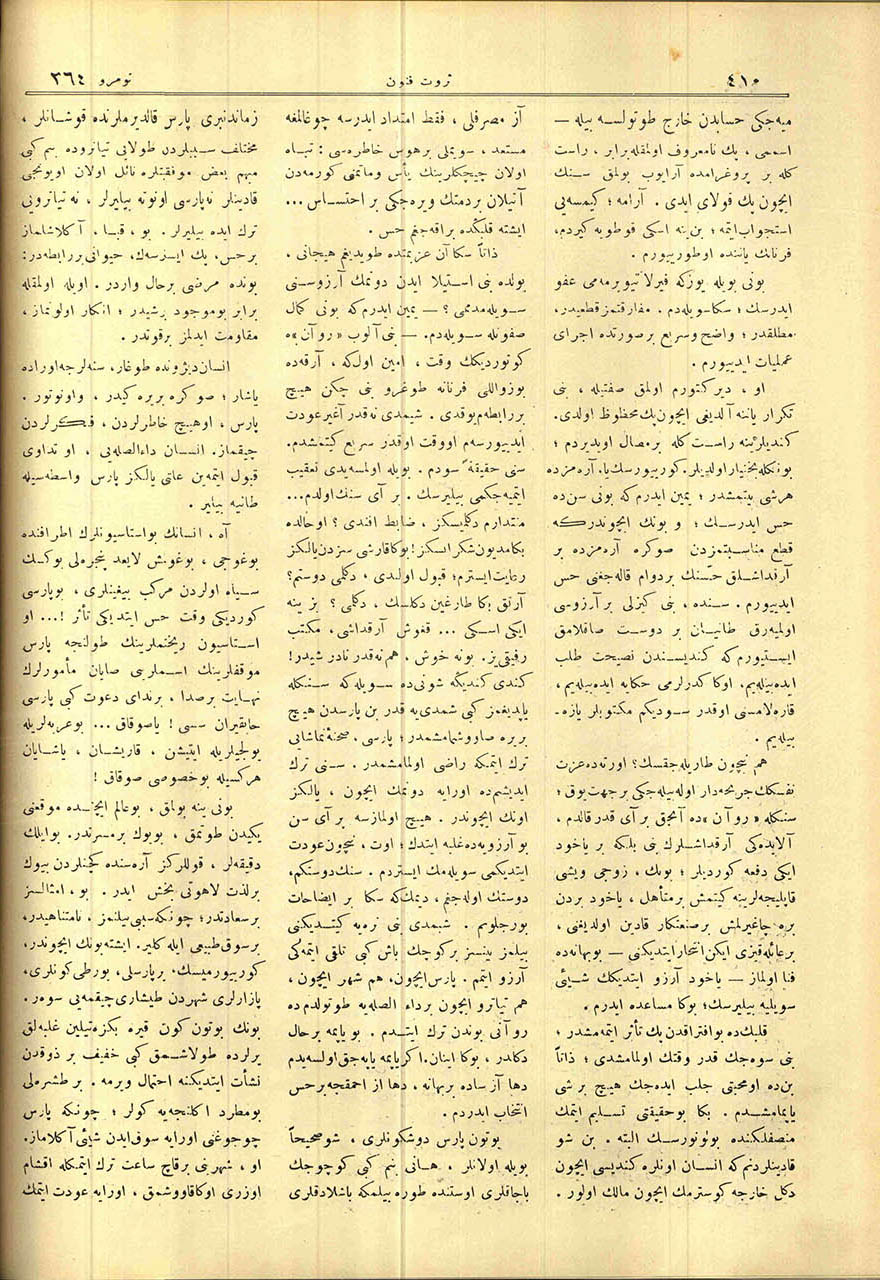 ٤١٠
ثروت فنون
نومرو ٣٦٤
میه‌جكی حسابدن خارج طوتولسه بیله —
اسمی ، پك نامعروف اولمقله برابر ، راست
كله بر پروغرامده آرایوب بولمق سنك
ایچون پك قولای ایدی . آرامه ؛ كیمسه‌یی
استجواب ایتمه ؛ بن ینه اسكی قوطویه كیردم ،
فرنانك یاننده اوطورییورم .
بونی بویله یوزكه فیرلاتیویرمه‌می عفو
ایدرسك ؛ سكا سویله‌دم . مفارقتمز قطعیدر ،
مطلقدر ؛ واضح وسریع برصورتده اجرای
عملیات ایدییورم .
او ، دیركتورم اولمق صفتیله ، بنی
تكرار یاننه آلدیغی ایچون پك محظوظ اولدی .
كندیلرینه راست كله برمصال اویدیردم ؛
بونكله بختیار اولدیلر. كورییورسك یا. آره‌مزده
هرشی بیتمشدر ؛ یمین ایدرم كه بونی سن ده
حس ایدرسك ؛ و بونك ایچوندركه
قطع مناسبتمزدن صوكره آره‌مزده بر
آرقداشلق حسنك بردوام قاله‌جغنی حس
ایدییورم . سنده ، بنی كیزلی برآرزوسی
اولمیه‌رق طانییان بر دوست صاقلامق
ایستییورم كه كندیسندن نصیحت طلب
ایده‌بیله‌یم، اوكا كدرلرمی حكایه ایده‌بیله‌یم ،
قاره‌لامسنی اوقدر سودیكم مكتوبلر یازه‌-
بیله‌یم .
هم نیچون طاریله‌جقسك؟ اورته‌ده عزت
نفسكك جریحه‌دار اوله‌بیله‌جكی برجهت یوق ؛
سنكله « روآن » ده آنجق بر آی قدر قالدم ،
آلایده‌كی آرقداشلرك بنی بلكه بر یاخود
ایكی دفعه كوردیلر ؛ بونك ، زوجی ویشی
قاپلیجه‌لرینه كیتمش برمتأهل ، یاخود بردن
بره چاغیرلمش برصنعتكار قادین اولدیغنی ،
برعائله قیزی ایكن انتحار ایتدیكنی — بو بهانه‌ده
فنا اولماز — یاخود آرزو ایتدیكك شیئی
سویلیه بیلیرسك ؛ بوكا مساعده ایدرم .
قلبك ده بوافتراقدن پك تأثر ایتمه‌مشدر ؛
بنی سوه‌جك قدر وقتك اولمامشدی ؛ ذاتاً
بن ده اومحبتی جلب ایده‌جك هیچ برشی
یاپمامشدم . بكا بوحقیقتی تسلیم ایتمك
منصفلكنده بولونورسك البته . بن شو
قادینلردنم كه انسان اونلره كندیسی ایچون
دكل خارجه كوسترمك ایچون مالك اولور .
آز مصرفلی ، فقط امتداد ایدرسه چوغالمغه
مستعد ، سویملی برهوس خاطره‌سی : تباه
اولان چیچكلرینك یأس وماتمنی كورمه‌دن
آتیلان بردمتك ویره‌جكی بر احتساس ...
ایشته قلبكده براقه‌جغم حس .
ذاتاً سكا آن عزیمتده طویدیغم هیجانی ،
یولده بنی استیلا ایدن دونمك آرزوسنی
سویله‌مدممی ؟ — یمین ایدرم كه بونی كمال
صفوتله سویله‌دم. — بنی آلوب « روآن » ه
كوتوردیكك وقت ، امین اول كه ، آرقه‌ده
بوزواللی فرنانه طوغرو بنی چكن هیچ
بررابطه‌م یوقدی . شیمدی نه قدر آغیر عودت
ایدییورسه‌م اووقت اوقدر سریع كیتمشدم.
سنی حقیقةً سودم . بویله اولمسه‌یدی تعقیب
ایتمیه‌جكمی بیلیرسك . بر آی سنك اولدم...
منتدارم دكلمیسكز ، ضابط افندی ؟ اوحالده
بكامدیون شكرانسكز ! بوكا قارشی سزدن یالكز
رعایت ایسترم ؛ قبول اولندی ، دكلمی دوستم؟
آرتق بكا طارغین دكلسك ، دكلمی ؟ بز ینه
ایكی اسكی ... قغوش آرقداشی ، مكتب
رفیقی یز. بو نه خوش ، هم نه قدر نادر شیدر !
كندی كندیكه شونی ده سویله كه سنكله
یاپدیغمز كبی شمدی یه قدر بن پارسدن هیچ
بریره صاووشمامشمدر ؛ پارسی ، صحنهٔ تماشایی
ترك ایتمكه راضی اولمامشمدر . سنی ترك
ایدیشم ده اورایه دونمك ایچون ، یالكز
اونك ایچوندر . هیچ اولمازسه بر آی سن
بو آرزویه‌ده غلبه ایتدك ؛ اوت ، نیچون عودت
ایتدیكمی سویله‌مك ایستردم . سنك دوستكم،
دوستك اوله‌جغم ، دیمك كه سكا بر ایضاحات
بورجلویم . شیمدی بنی نره‌یه كیتدیكنی
بیلمز بینسز بركوچك باش كبی تلقی ایتمه‌كی
آرزو ایتمم . پارس ایچون، هم شهر ایچون ،
هم تیاترو ایچون برداء الصله‌یه طوتولدم ده
روآنی بوندن ترك ایتدم . بو یاپمه برحال
دكلدر ، بوكا اینان. اكر یاپمه یاپه‌جق اولسه‌یدم
دها آز ساده بربهانه ، دها از احمقجه برحس
انتخاب ایدردم .
بوتون پارس دوشكونلری ، شو صحیحاً
بویله اولانلر ، هانی بنم كبی كوچوجك
باجاقلری اوستنده طوره بیلمكه باشلادقلری
زماندنبری پارس قالدیرملرنده قوشانلر ،
مختلف سببلردن طولایی تیاتروده بنم كبی
مبهم بعض موفقیتلره نائل اولان اویونجی
قادینلر نه پارسی اونوته بیلیرلر ، نه تیاترویی
ترك ایده بیلیرلر . بو ، قبا ، آكلاشلماز
برحس، پك ایسزسه‌ك، حیوانی بررابطه‌در:
بونده مرضی برحال واردر . اویله اولمقله
برابر بوموجود برشیدر ؛ انكار اولونماز ،
مقاومت ایدلمز برقوتدر .
انسان دیژونده طوغار، سنه‌لرجه اوراده
یاشار ؛ صوكره بریره كیدر ، واونوتور .
پارس ، اوهیچ خاطرلردن ، فكرلردن
چیقماز. انسان داء الصله‌یی ، او تداوی
قبول ایتمه‌ین علتی یالكز پارس واسطه‌سیله
طانیه بیلیر .
آه ، انسانك بو استاسیونلرك اطرافنده
بوغوجی ، بوغوش لایعد پنجره‌لی یوكسك
سیاه اولردن مركب بیغینلری ، بوپارسی
كوردیكی وقت حس ایتدیكی تأثر !... او
استاسیون ریختملرینك طولنجه پارس
موقفلرینك اسملرینی صایان مأمورلرك
نهایت برصدا ، برندای دعوت كبی پارسی
حایقیران سسی ! یاصوقاق ... بوعربه‌لریله
یولجیلریله ایتیشن ، قاریشان ، یاشایان
هركسیله بوخصوصی صوقاق !
بونی ینه بولمق ، بوعالم ایچنده موقعنی
یكیدن طوتمق ، بویوك برمسرتدر. بوایلك
دقیقه‌لر ، قوللركز آره‌سنده كچنلردن بیوك
برلذت لاهوتی بخش ایدر . بو ، امثالسز
برسعادتدر ؛ چونكه سببی بیلنمز ، نامتناهیدر،
برسوق طبیعی ایله كلیر. ایشته بونك ایچوندر،
كورییورمیسك، برپارسلی، یورطی كونلری،
پازارلری شهردن طیشاری چیقمه‌یی سوه‌ر.
بونك بوتون كون قیره بكزه‌تیلین غلبه‌لق
یرلرده طولاشمق كبی خفیف بر ذوقدن
نشأت ایتدیكنه احتمال ویرمه . بر طشره‌لی
بومطرد اكلنجه‌یه كولر ؛ چونكه پارس
چوجوغنی اورایه سوق ایدن شیئی آكلاماز.
او ، شهرینی برقاچ ساعت ترك ایتمكله اقشام
اوزری اوكا قاووشمق ، اورایه عودت ایتمك